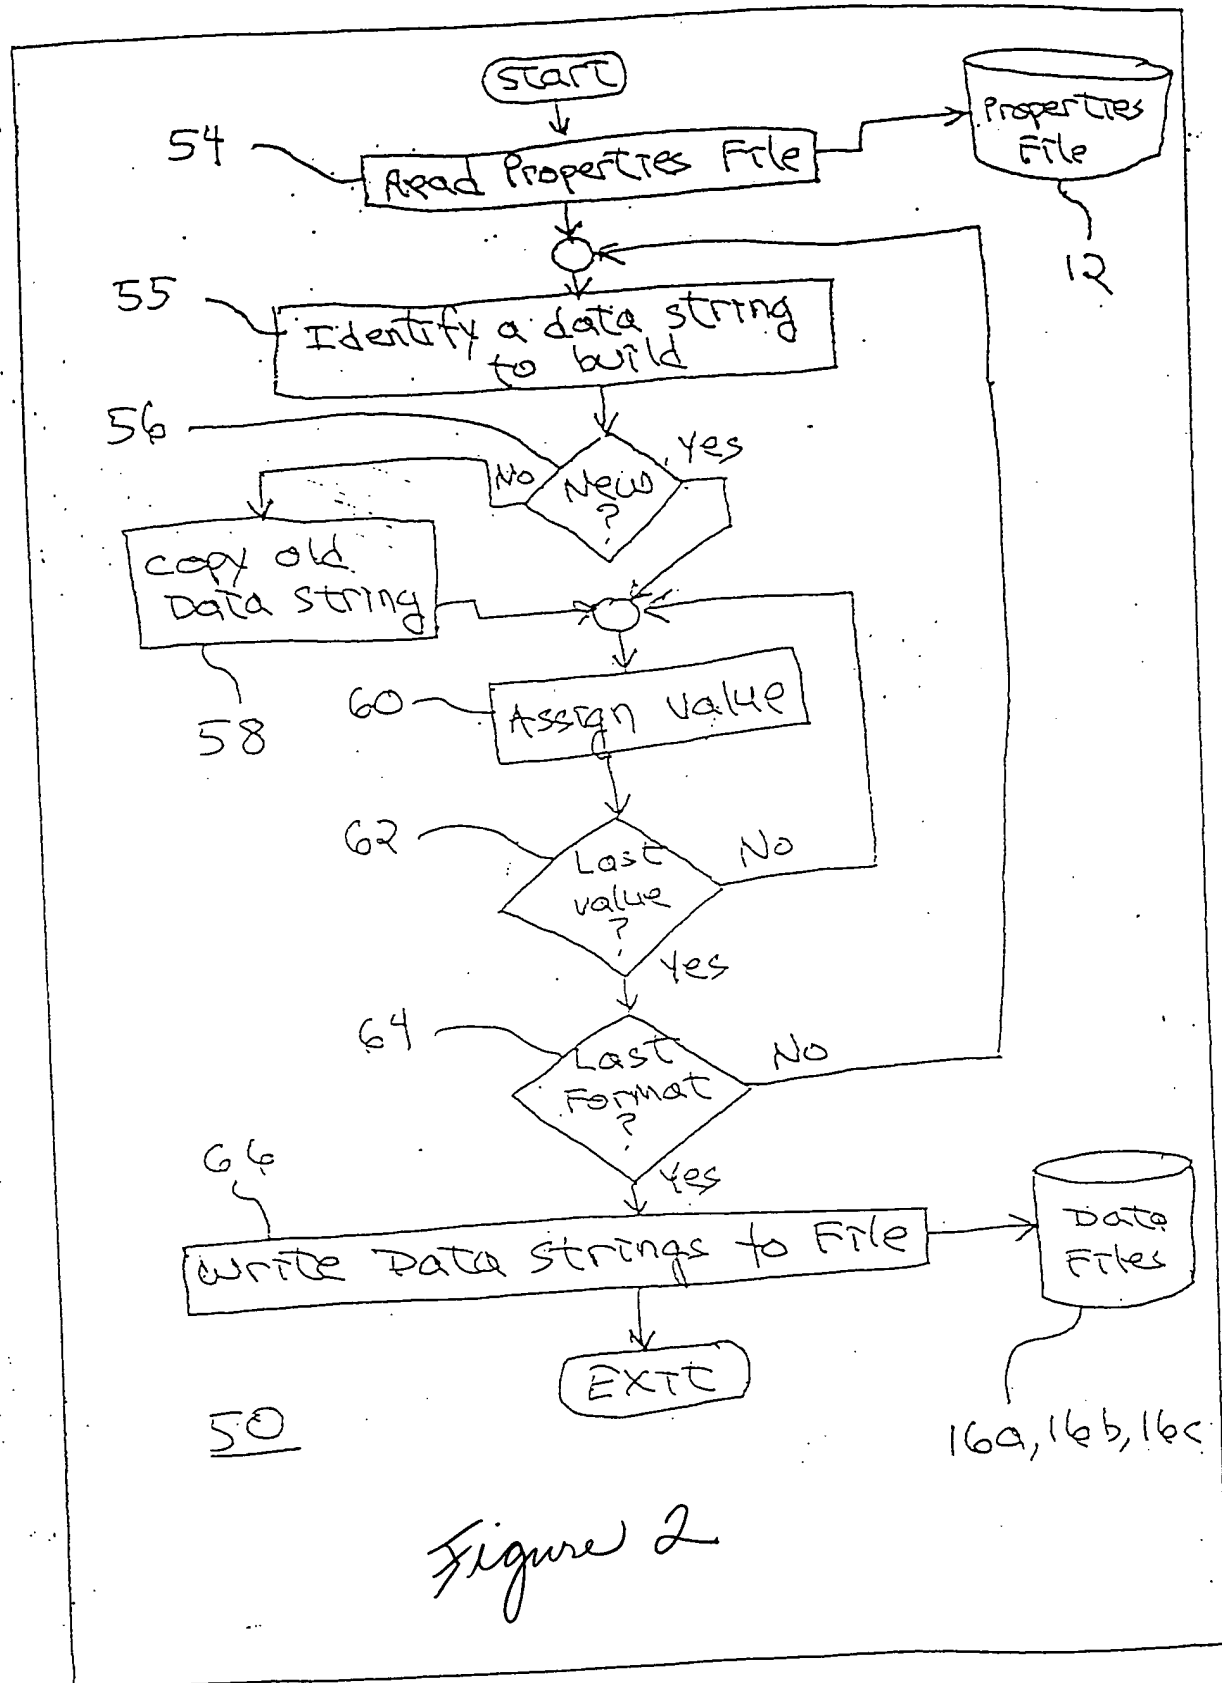 start
Properties
File
54
Read Properties File
12
55
Identify a data string
to build
56
Yes
No
New
?
Copy old
Data string
58
60
Assign value
62
Last
value
?
No
Yes
64
Last
Format
?
No
Yes
66
Write Data Strings to File
Data
Files
EXIT
50
16a, 16b, 16c
Figure 2